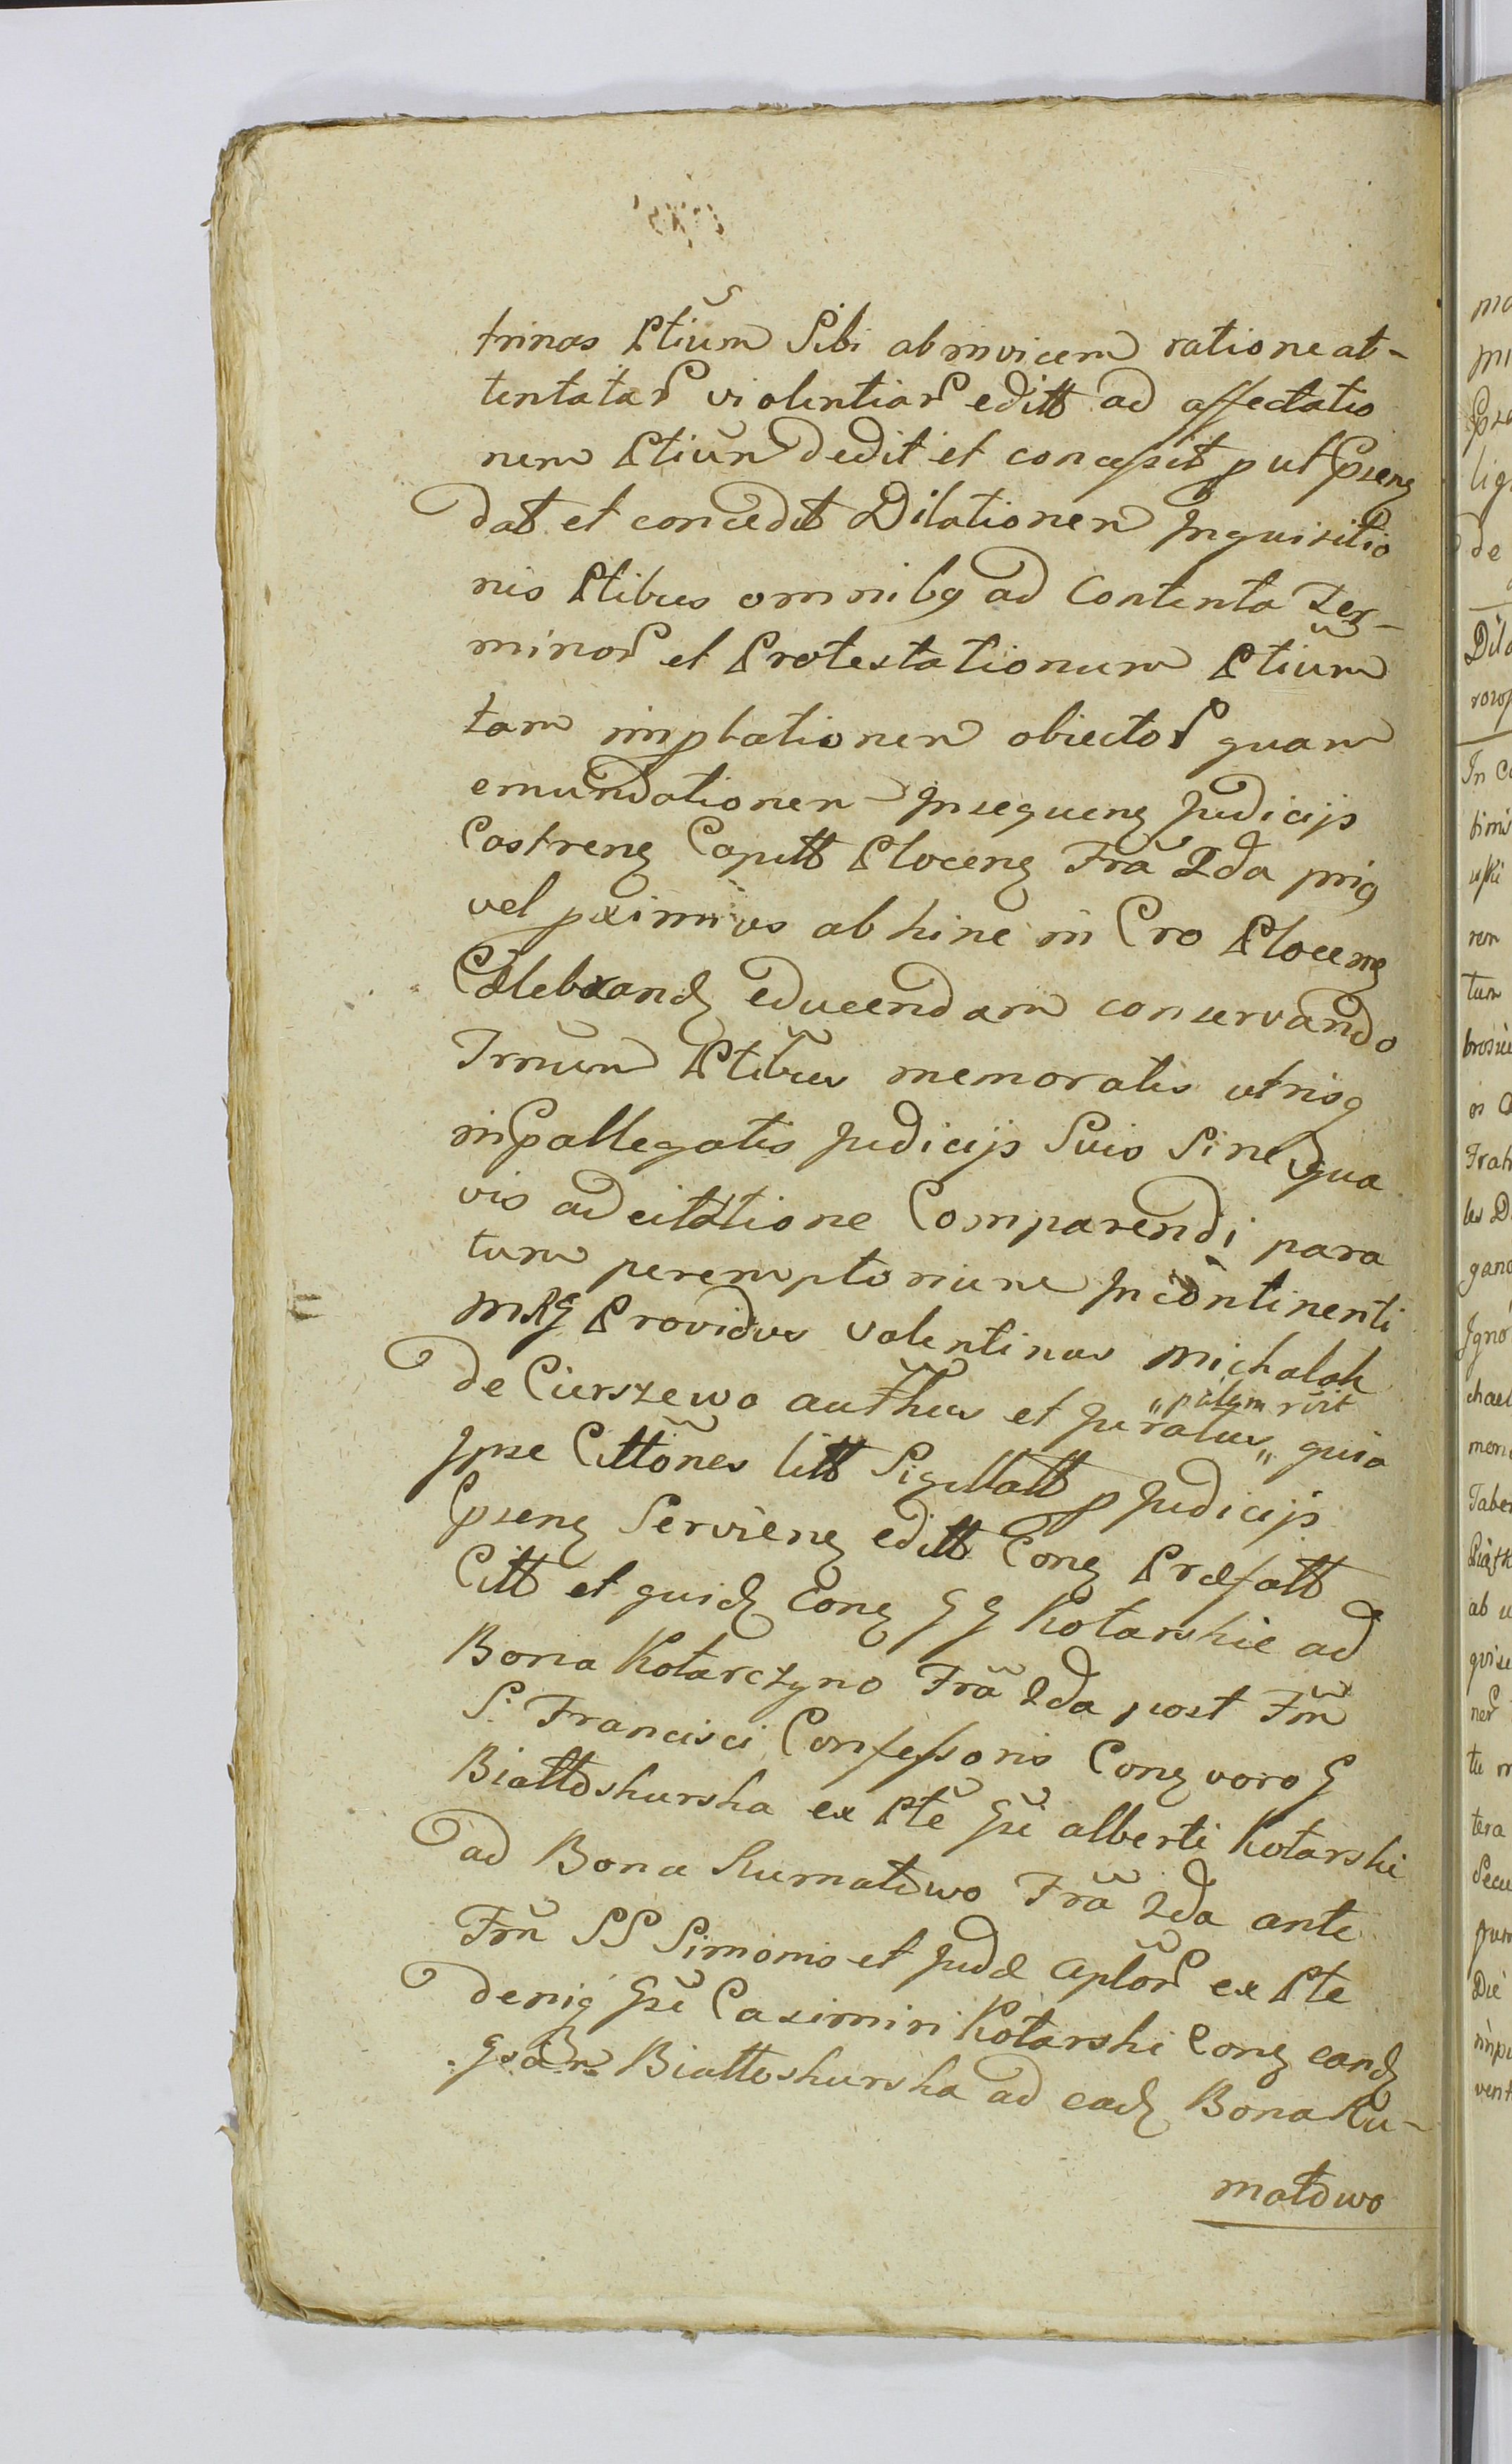 trinas Ptiũm Sibi abinvicem ratione at-
tentatar violentiar editt ad affectatio
nem Ptiũm dedit et concessit put Pseng
dat et concedit Dilationem Inquisitio
nis Ptibus omnibq ad Contenta Ter-
minor et Protestationum Ptiũm
tam impbationem obiector quam
emundationem Insequeng Judicijs
Castreng Capitt Ploceng Fra 2da prig
vel pximius ab hinc in Cro Ploceng
Celebrand educendam conservando
Trmum Ptibus memoratis utrisq
in Pallegatis Judicijs Suis Sine qua
vis adcitatione Comparendi para
tum peremptorium Incontinenti
Providus Valentinus Michalak
de Cierszewo authus et Juratus „palam rũit„ quia
Ipse Cittõnes litt Sigillatt p Judicijs
Pseng Servieng editt Cong Præfatt
Citt et quid Cong G G Kotarskie ad
Bona Kotarczyno Fra 2da post Frm
S. Francisci Confessoris Cong vero G
Białłoskurska ex Pte Gsi Alberti Kotarski
ad Bona Rumatowo Fra 2da ante
Frm SS Simonis et Judæ Aplor ex Pte
deniq Gsi Casimiri Kotarski Cong eand
Gsam Białłoskurska ad ead Bona Ru-
matowo